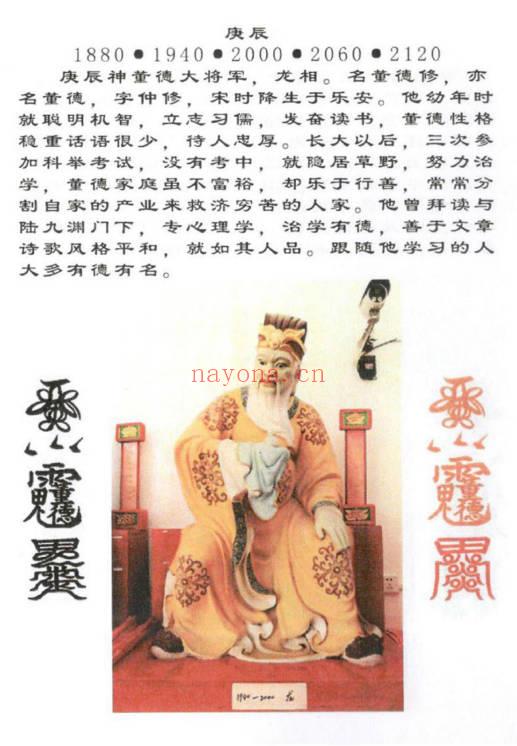 庚辰
1880●1940●2000●2060●2120
庚辰神董德大将军，龙相。名董德修，亦
名董德，字仲修，宋时降生于乐安。他幼年时
就聪明机智，立志习儒，发奋读书，董德性格
稳重话语很少，待人忠厚。长大以后，三次参
加科举考试，没有考中，就隐居草野，努力治
学，董德家庭虽不富裕，却乐于行善，常常分
割自家的产业来救济穷苦的人家。他曾拜读与
陆九渊门下，专心理学，治学有德，善于文章
诗歌风格平和，就如其人品。跟随他学习的人
大多有德有名。
nayona.cn
1940-2000 龙